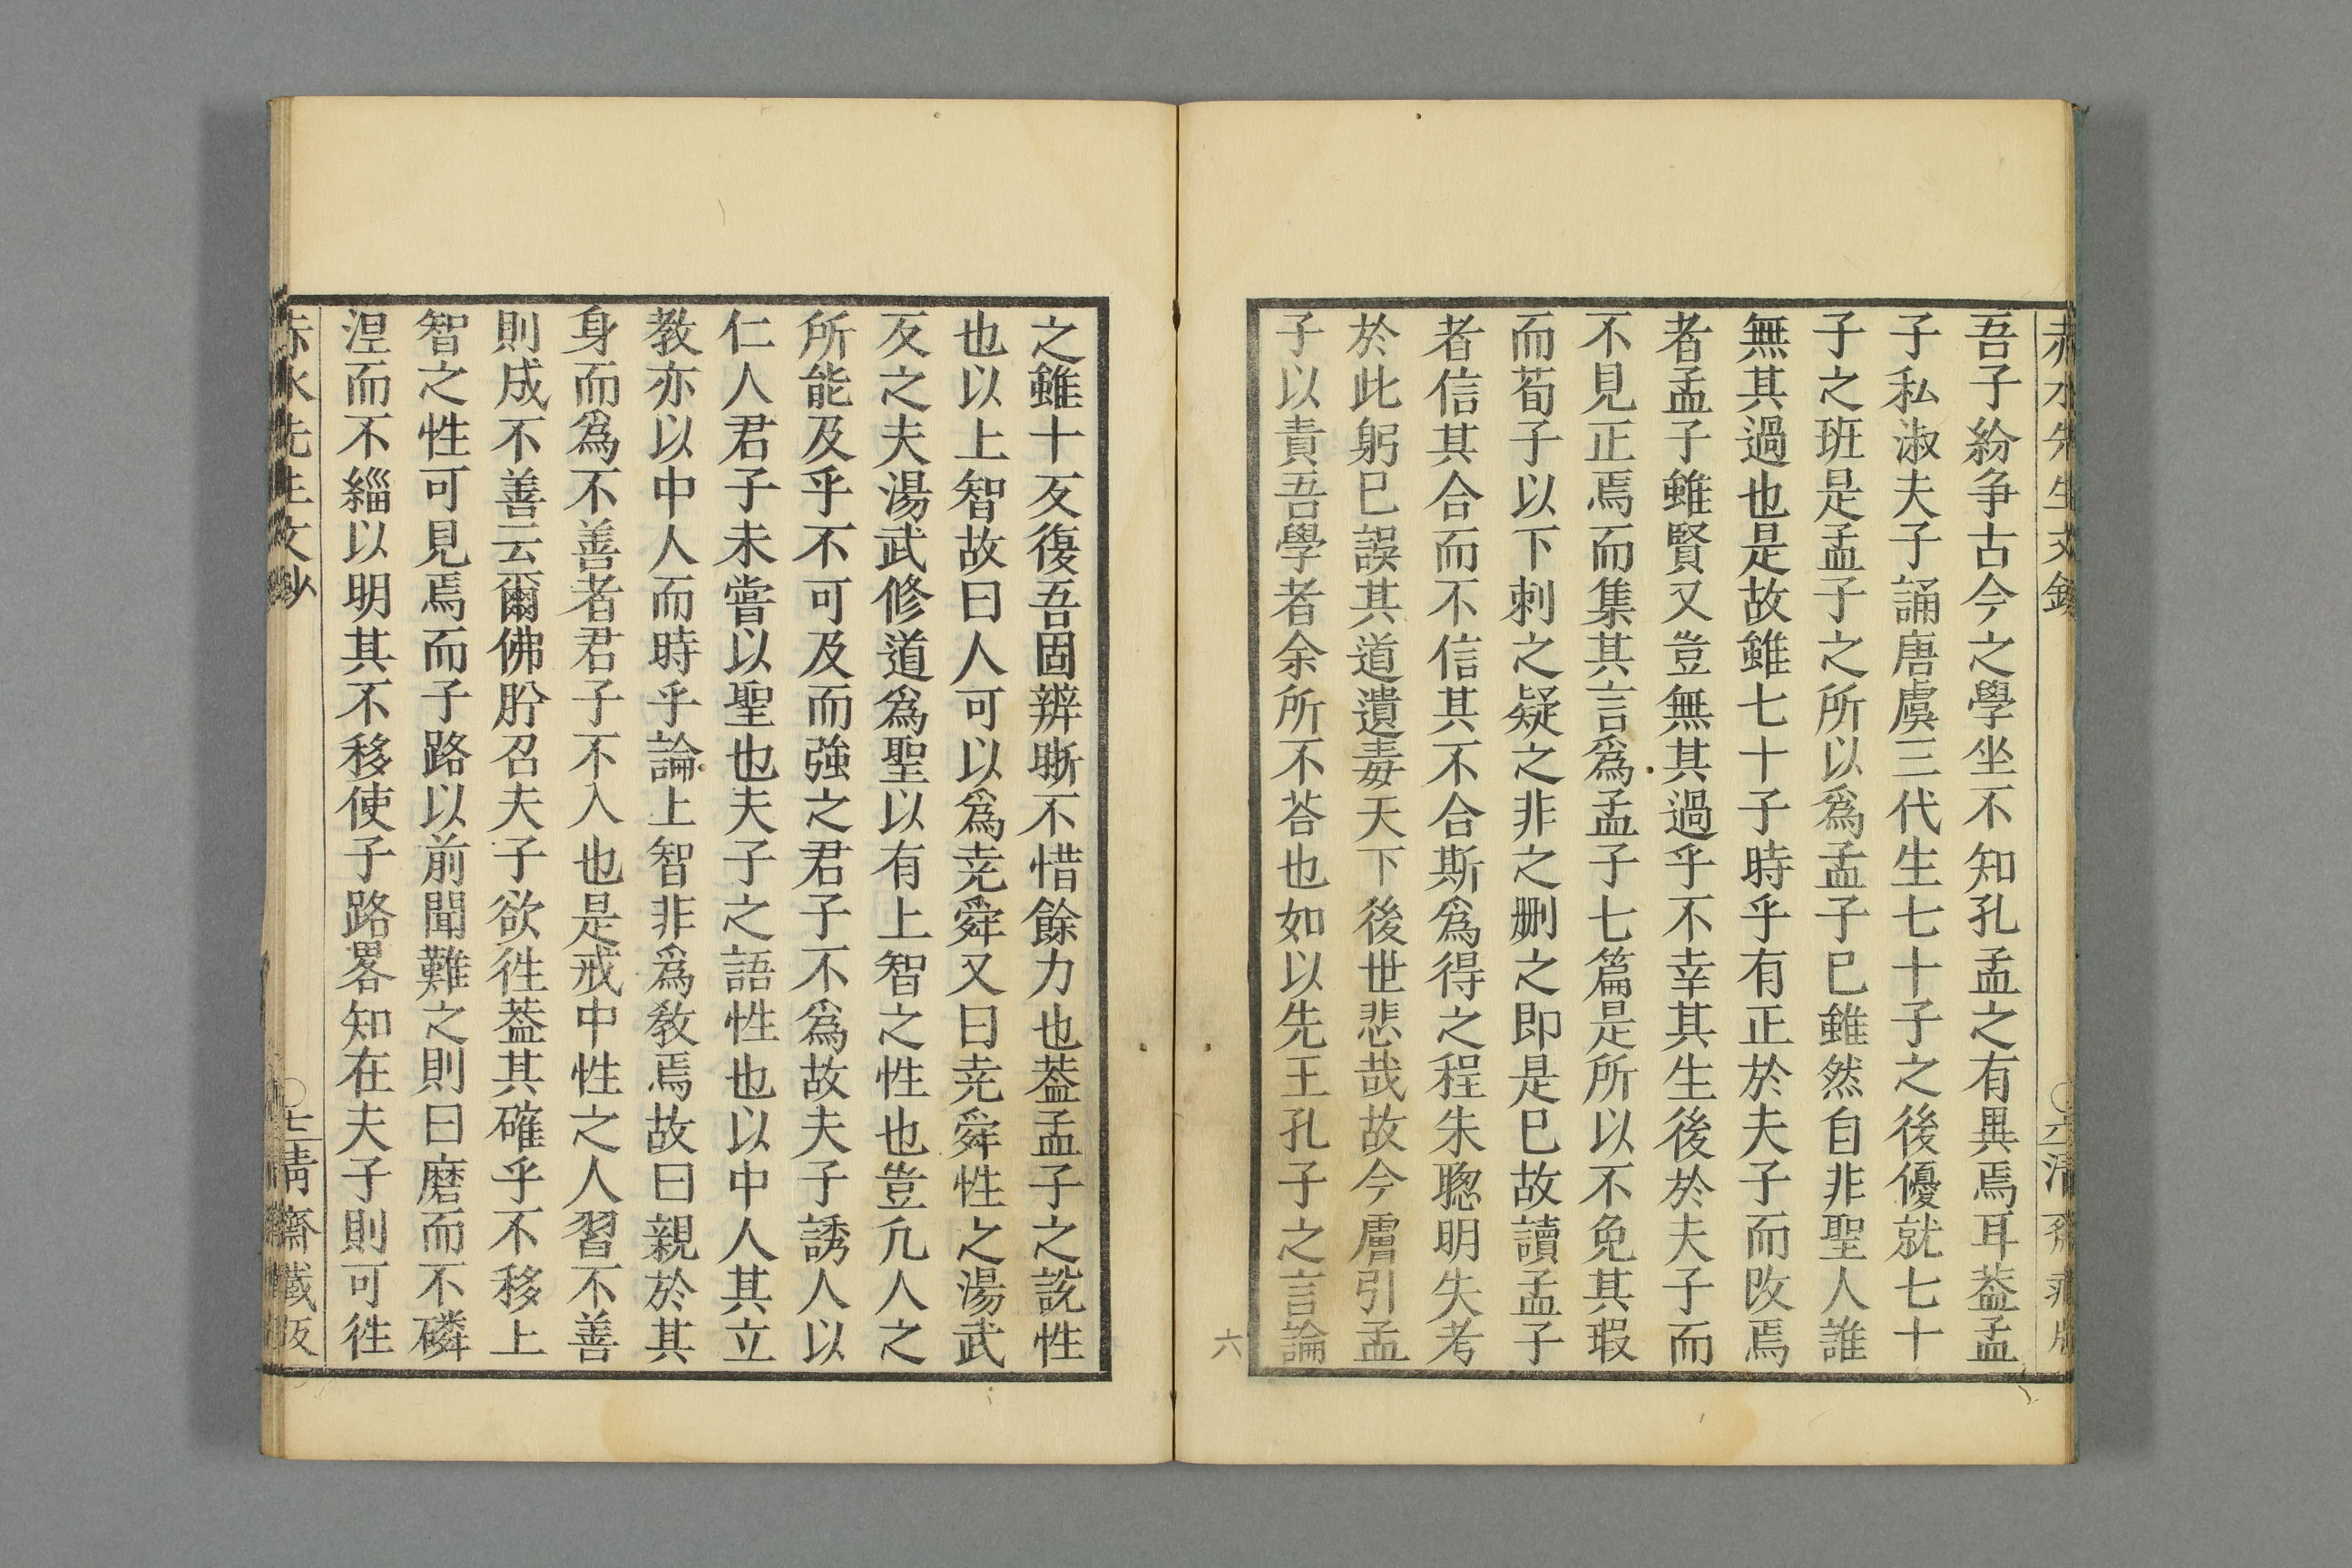 赤水先生文鈔
〇六
清齋藏版
吾子紛争古今之學坐不知孔孟之有異焉耳葢孟
子私淑夫子誦唐虞三代生七十子之後優就七十
子之班是孟子之所以爲孟子巳雖然自非聖人誰
無其過也是故雖七十子時乎有正於夫子而改焉
者孟子雖賢又豈無其過乎不幸其生後於夫子而
不見正焉而集其言爲孟子七篇是所以不免其瑕
而荀子以下刺之疑之非之刪之即是巳故讀孟子
者信其合而不信其不合斯爲得之程朱聦明失考
於此躬巳誤其道遺毒天下後世悲哉故今膚引孟
子以責吾學者余所不荅也如以先王孔子之言論
六
之雖十反復吾固辨晰不惜餘力也葢孟子之說性
也以上智故曰人可以爲尭舜又曰尭舜性之湯武
反之夫湯武修道爲聖以有上智之性也豈凡人之
所能及乎不可及而強之君子不爲故夫子誘人以
仁人君子未嘗以聖也夫子之語性也以中人其立
教亦以中人而時乎論上智非爲敎焉故曰親於其
身而爲不善者君子不入也是戒中性之人習不善
則成不善云爾佛肸召夫子欲徃葢其確乎不移上
智之性可見焉而子路以前聞難之則曰磨而不磷
涅而不緇以明其不移使子路畧知在夫子則可徃
赤水先生文鈔
〇七
清齋藏版